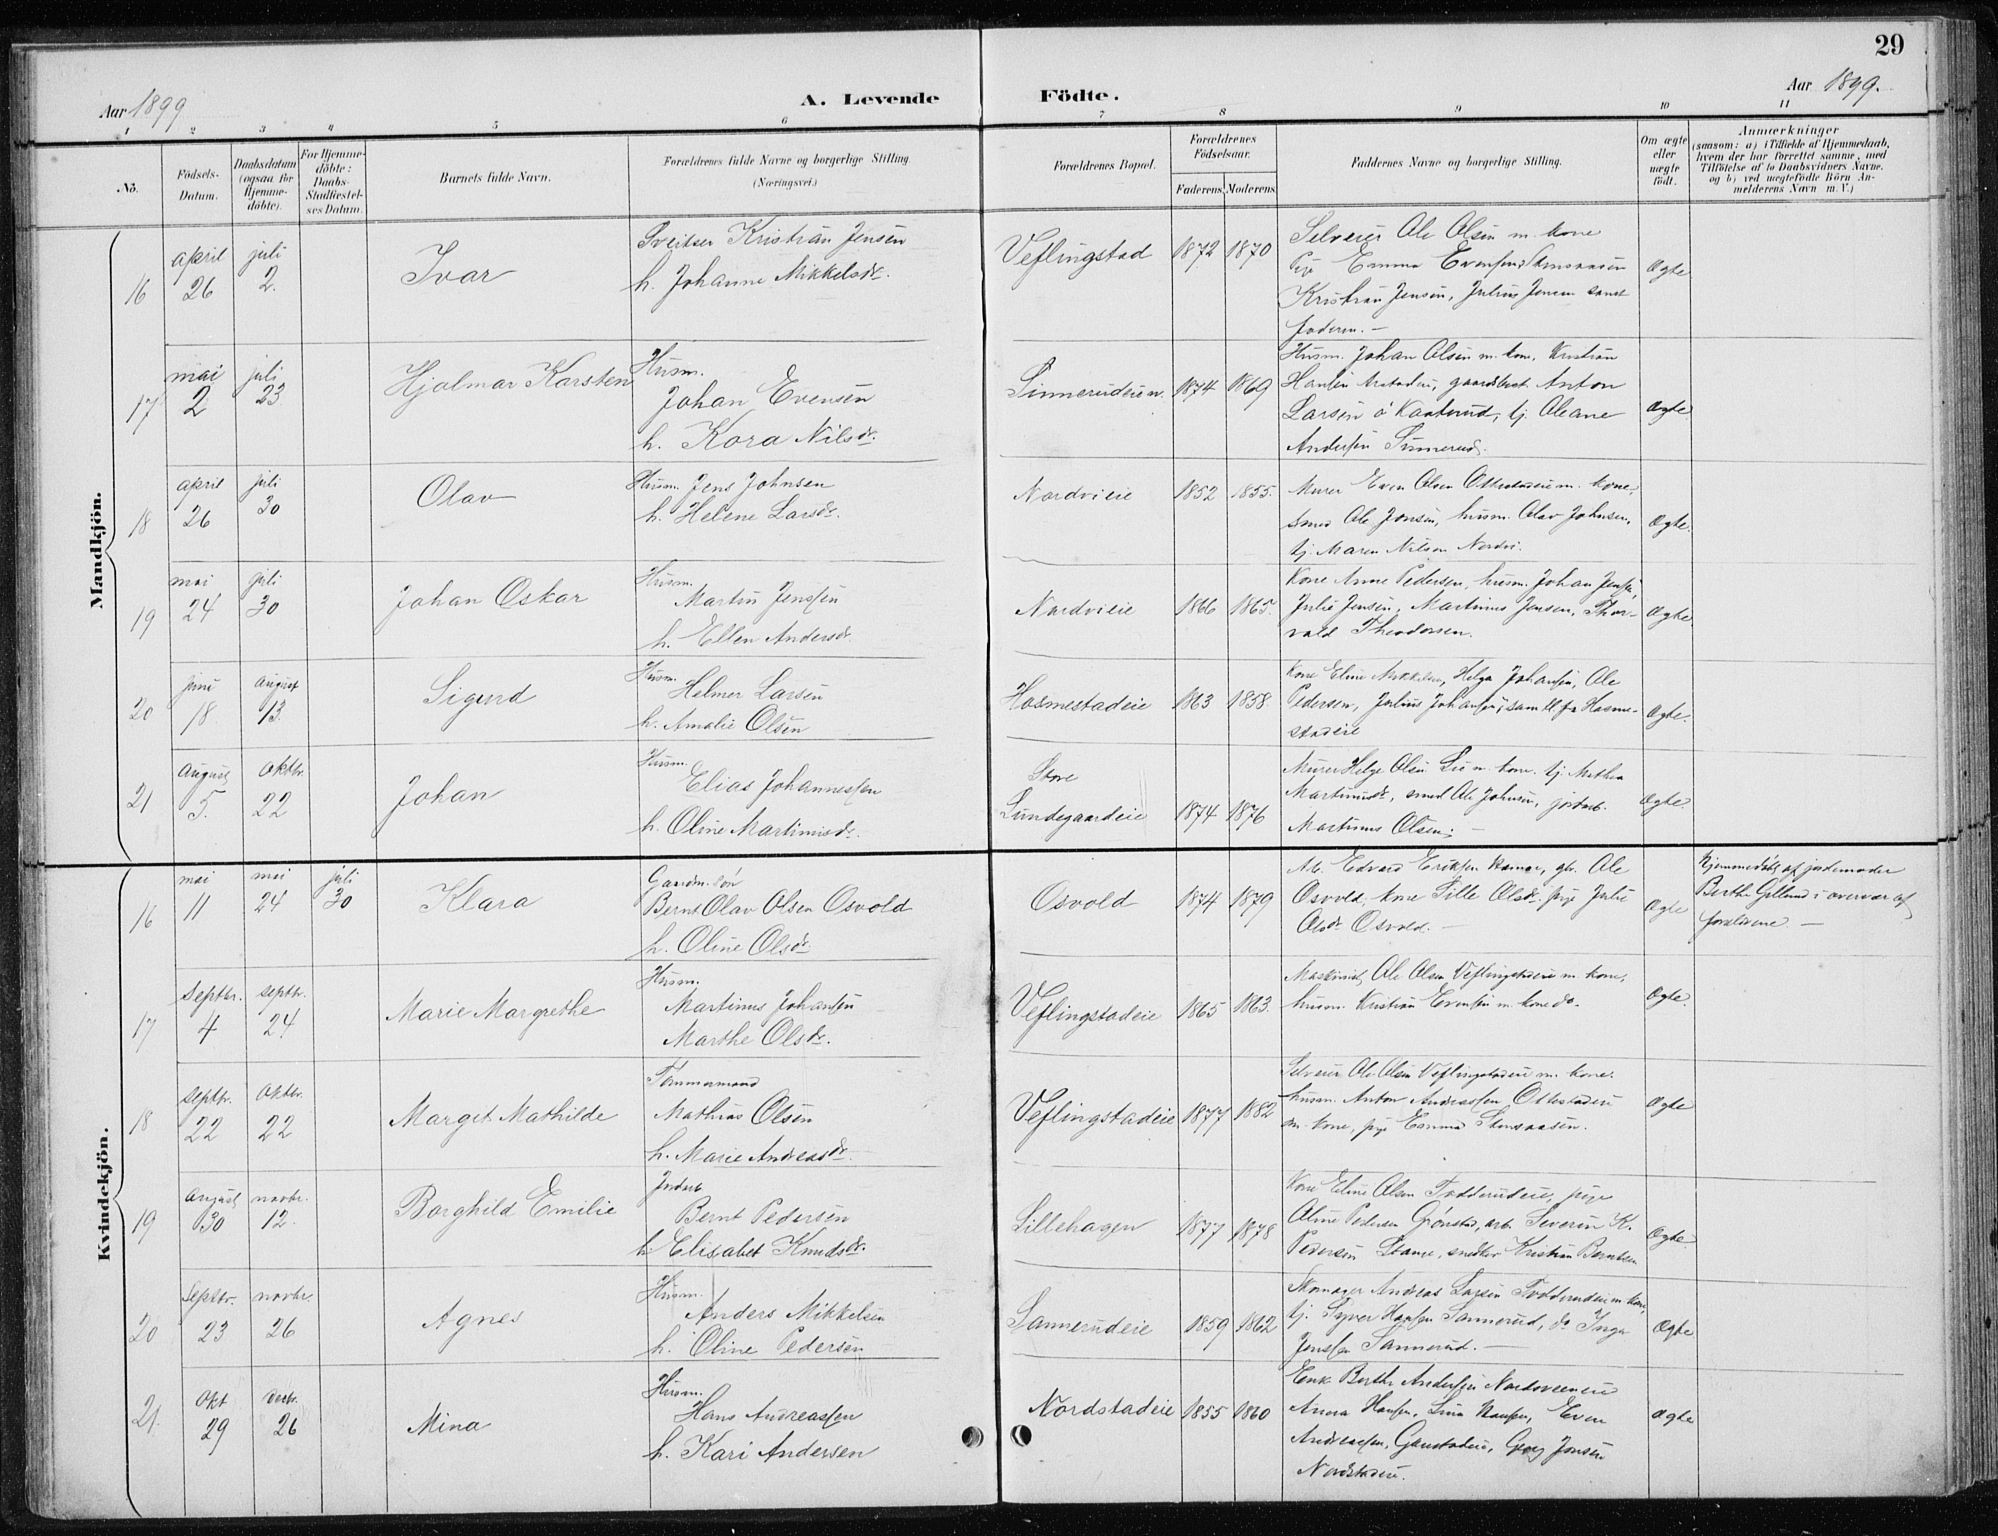 29
Aar 1899
A. Levende Födte.
Aar 1899.
1 2 3 4 5 6 7 8 9 10 11
No.
Födsels-Datum.
Daabsdatum (ogsaa for Hjemmedöbte).
For Hjemmedöbte: Daabs-Stadfæstelses Datum.
Barnets fulde Navn.
Forældrenes fulde Navne og borgerlige Stilling. (Næringsvei.)
Forældrenes Bopæl.
Forældrenes Födselsaar.
Faderens. Moderens.
Faddernes Navne og borgerlige Stilling.
Om ægte eller uægte födt.
Anmærkninger
(saasom: a) i Tilfælde af Hjemmedaab, hvem der har forrettet samme, med Tilföielse af to Daabsvidners Navne, og b) ved uægtefödte Börn Anmelderens Navn m. V.)
Mandkjön.
16
april 26
juli 2.
Ivar
Sveitser Kristian Jensen
h. Johanne Mikkelsdr.
Veflingstad
1872 1870
Selveier Ole Olsen m. kone
Pige Emma Evensen Stensaasen
Kristian Jensen, Julius Jensen samt
faderen. —
Ægte
17
mai 2
juli 23
Hjalmar Karsten
Husm.
Johan Evensen
h. Kora Nilsdr.
Sinnerudeien
1874 1869
Husm. Johan Olsen m. kone, Kristian
Hansen, gaardbest. Anton
Larsen, tj. Oleane
Andersen Sinnerud.
Ægte
18
april 26
juli 30
Olav
Husm. Jens Johnsen
h. Helene Larsdr.
Nordvieie
1852 1855.
Murer Even Olsen Ottestadeie m. kone,
smed Ole Jonsen, husm. Olav Johnsen,
tj. Maren Nilsen Nordvi.
Ægte.
19
mai 24
juli 30
Johan Oskar
Husm.
Martin Jenssen
h. Ellen Andersdr.
Nordvieie
1866 1865.
Kone Anne Pedersen, husm. Johan Jensen,
Julie Jensen, Martinus Jensen, Thor-
vald Theodorsen.
Ægte
20
juni 18
august 13.
Sigurd
Husm.
Helmer Larsen
h. Amalie Olsen
Hosmestadeie
1863 1858.
Kone Eline Mikkelsen, Helga Johansen, Ole
Pedersen, Julius Johansen, samtl. fra Hosme-
stadeie
Ægte.
21
August 5.
Oktbr. 22
Johan
Husm.
Elias Johannessen
h. Oline Martinusdr.
Store
Lundegaardeie
1874 1876
Murer Helge Olsen Lie m. kone, tj. Mathea
Martinusdr., smed Ole Johnsen, jordarb.
Martinus Olsen. —
Ægte.
Kvindekjön.
16
mai 11
mai 24
juli 30
Klara
Gaardm. søn
Bernt Olav Olsen Osvold
h. Oline Olsdr.
Osvold
1874 1879
Edvard Eriksen Hamar, gbr. Ole
Osvold, kone Tille Olsdr. pige Julie
Olsdr. Osvold. —
Ægte
Hjemmedøbt af jordemoder
Berthe Gillund i overvær af
forældrene —
17
Septbr. 4
septbr. 24
Marie Margrethe
Husm.
Martinus Johansen
Marthe Olsdr.
Veflingstadeie
1865 1863.
Maskinist Ole Olsen Veflingstadeie m. kone,
husm. Kristian Evensen m. kone do.
Ægte.
18
septbr. 22
oktbr. 22
Margit Mathilde
Tømmermand
Mathias Olsen
h. Marie Andreasdr.
Veflingstadeie
1877 1882
Selveier Ole Olsen Veflingstadeie m. kone.
husm. Anton Andreassen Ottestadeie
m. kone, pige Emma Stensaasen.
Ægte
19
August 30
novbr. 12.
Borghild Emilie
Jordarb
Bernt Pedersen
h Elisabet Knudsdr.
Lillehagen
1877 1878
Kone Eline Olsen Fodderudeie, pige
Oline Pedersen Grønstad, arb. Severin K.
Pedersen Stange, snedker Kristian Berntsen
Ægte.
20
Septbr. 23
novbr. 26
Agnes
Husm.
Anders Mikkelsen
h. Oline Pedersen
Sannerudeie
1859 1862
Skomager Andreas Larsen Fodderudeie m. kone,
tj. Syver Hansen Sannerud, do Inga
Jenssen Sannerud. —
Ægte
21.
Okt 29
Decbr. 26
Mina
Husm.
Hans Andreassen
h. Kari Andersen
Nordstadeie
1855 1860
Enk Berthe Andersen
Anna Hansen, Lina Hansen, Even
Andreassen, Georg Jonsen
Nordstadeie.
Ægte